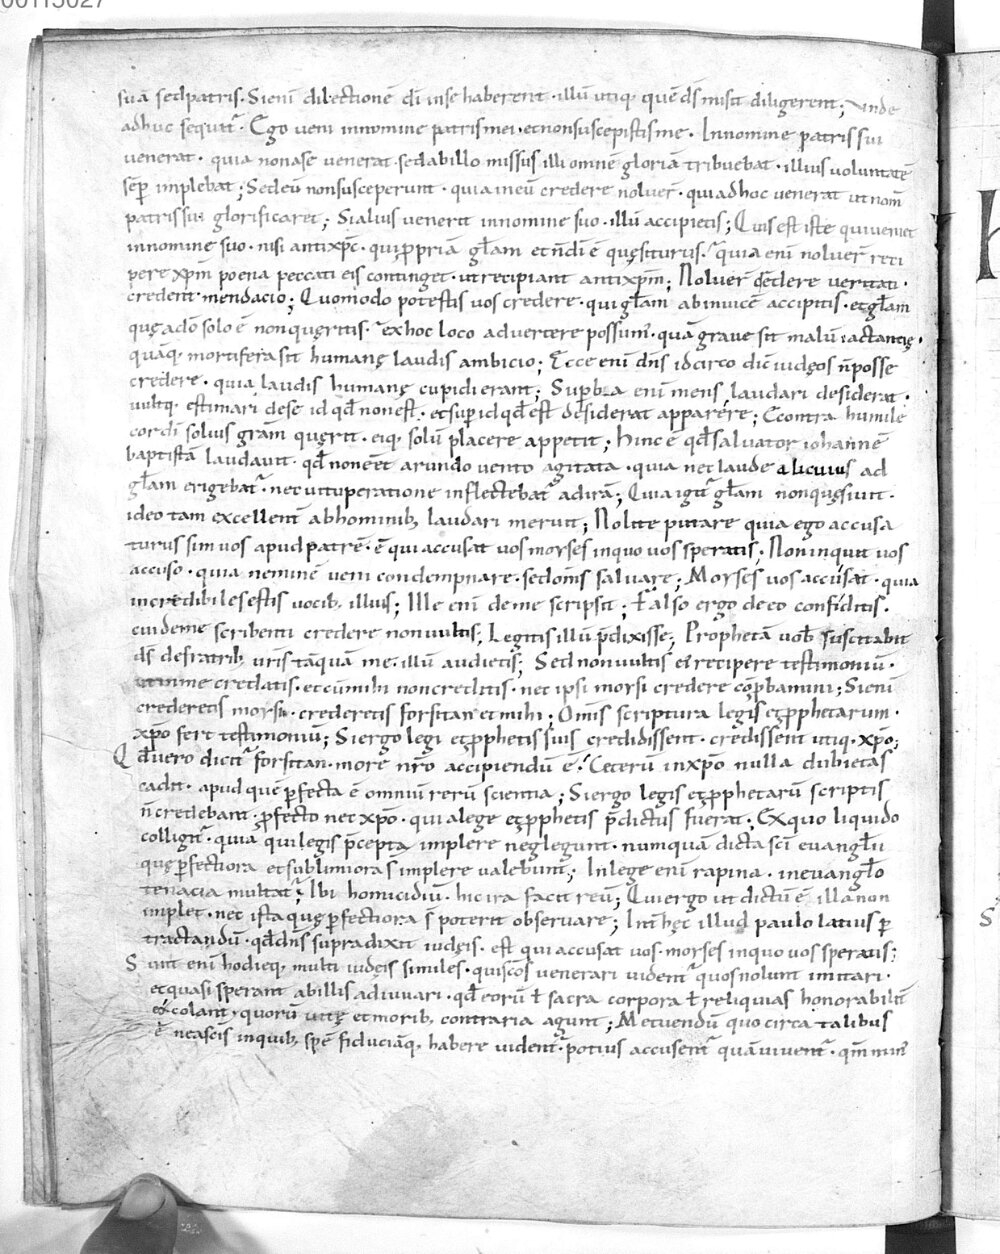 00113027
suā sed patris. Si enī dilectionē dī in se haberent. illū utiq; quē ds̄ misit diligerent; Unde
adhuc sequit̄. Ego veni in nomine patris mei. et non suscepistis me. In nomine patris sui
venerat. quia non a se venerat. sed ab illo missus illi omnē gloriā tribuebat. illius voluntatē
sēp implebat; Sed eū non susceperunt. quia in eū credere noluer̄. qui adhoc venerat ut nom̄
patris sui glorificaret; Si alius venerit in nomine suo. illū accipietis; Quis est iste qui veniet
in nomine suo. nisi antixp̄c. qui ppriā gl̄am et n̄ dī ē quęsiturus. quia enī noluer̄ reci
pere xp̄m poena peccati eis continget. ut recipiant antixp̄m; Noluer̄ credere veritati.
credent mendacio; Quomodo potestis vos credere. qui gl̄am ab invicē accipitis. et gl̄am
quę a dō solo ē non quęritis. ex hoc loco advertere possum̄. quā grave sit malū iactantię.
quāq; mortifera sit humanę laudis ambicio; Ecce enī dn̄s idcirco dic̄ iudęos n̄ posse
credere. quia laudis humanę cupidi erant; Supba enī mens laudari desiderat.
vultq; estimari de se id qd̄ non est. et sup id qd̄ est desiderat apparere; Econtra humile
cor dī solius gr̄am querit. eiq; solū placere appetit; Hinc ē qd̄ salvator iohannē
baptistā laudavit. qd̄ non eēt arundo vento agitata. quia nec laude alicuius ad
gl̄am erigebat̄. nec vituperatione inflectebat̄ ad irā; Quia igit̄ gl̄am non quęsivit.
ideo tam excellent̄ ab hominib; laudari meruit; Nolite putare quia ego accusa
turus sim vos apud patrē. ē qui accusat vos moyses in quo vos speratis; Non inquit vos
accuso. quia neminē veni condempnare. sed om̄s salvare; Moyses vos accusat. quia
incredibiles estis vocib; illius; Ille enī de me scripsit; Falso ergo de eo confiditis.
cui de me scribenti credere non vultis; Legitis illū p̄dixisse; Prophetā vob̄ suscitabit
ds̄ de fratrib; vr̄is tāquā me. illū audietis; Sed non vultis ei recipere testimoniū.
ut in me credatis. et cū mihi non creditis. nec ipsi moysi credere cōpbamini; Si enī
crederetis moysi. crederetis forsitan et mihi; Om̄is scriptura legis et pphetarum.
xp̄o fert testimoniū; Si ergo legi et pphetis suis credidissent. credissent utiq; xp̄o;
Qd̄ vero dicit̄ forsitan. more nr̄o accipiendū ē; Ceterū in xp̄o nulla dubietas
cadit. apud quē pfecta ē omniū rerū scientia; Si ergo legis et pphetarū scriptis
n̄ credebant. pfecto nec xp̄o. qui a lege et pphetis p̄dictus fuerat; Ex quo liquido
colligit̄. quia qui legis p̄cepta implere neglegunt. numquā dicta scī evangl̄ii
quę pfectiora et sublimiora s̄ implere valebunt; In lege enī rapina. in evangl̄o
tenacia multat̄; Ibi homicidiū. hic ira facit reū; Qui ergo ut dictū ē illa non
implet. nec ista quę pfectiora s̄ poterit observare; Int̄ hęc illud paulo latius p
tractandū. qd̄ dn̄s supra dixit iudęis. est qui accusat vos. moyses in quo vos speratis;
Sunt enī hodieq; multi iudęis similes. qui scōs venerari vident̄ quos nolunt imitari.
et quasi sperant ab illis adiuvari. qd̄ eorū ł sacra corpora ł reliquias honorabilit̄
excolant. quorū vitę et morib; contraria agunt; Metuendū quocirca talibus
ē ne a scīs in quib; spē fiduciāq; habere vident̄. potius accusent̄ quā iuvent̄. qm̄